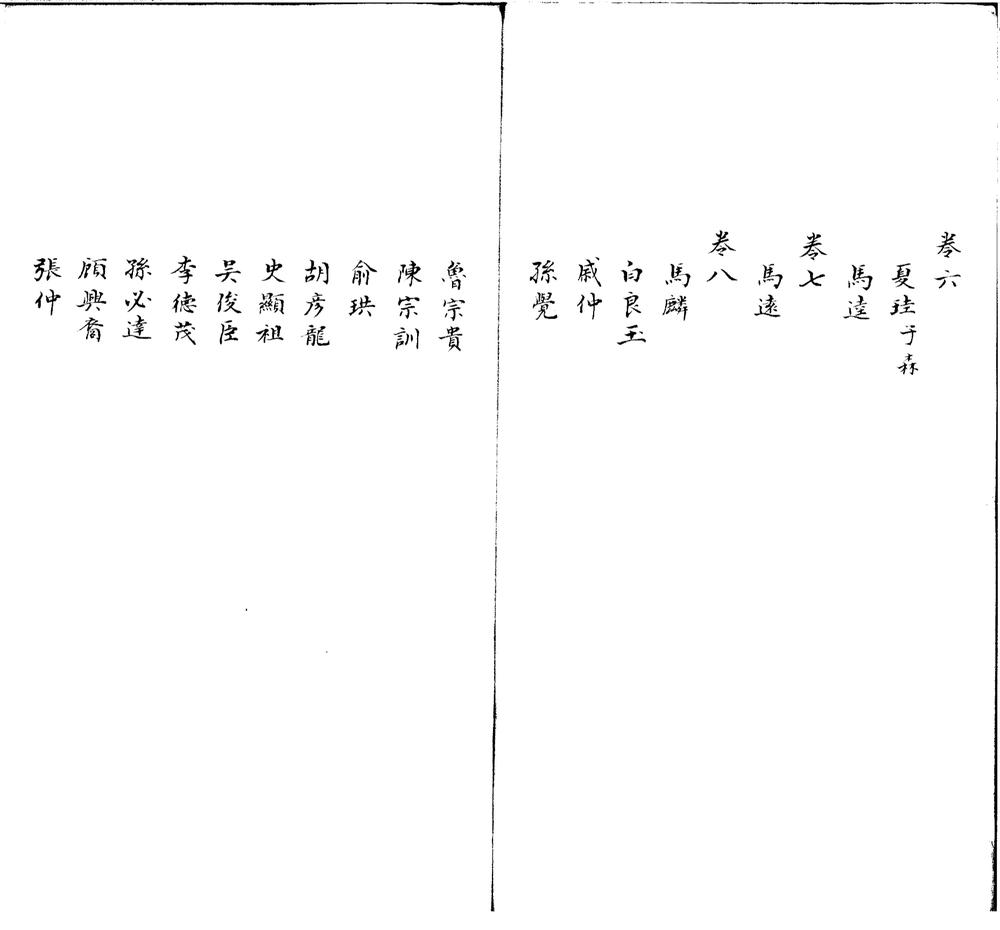 卷六
夏珪子森
馬逵
卷七
馬遠
卷八
馬麟
白良玉
戚仲
孫覺
魯宗貴
陳宗訓
俞珙
胡彦龍
史顯祖
吴俊臣
李德茂
孫必達
顧興裔
張仲